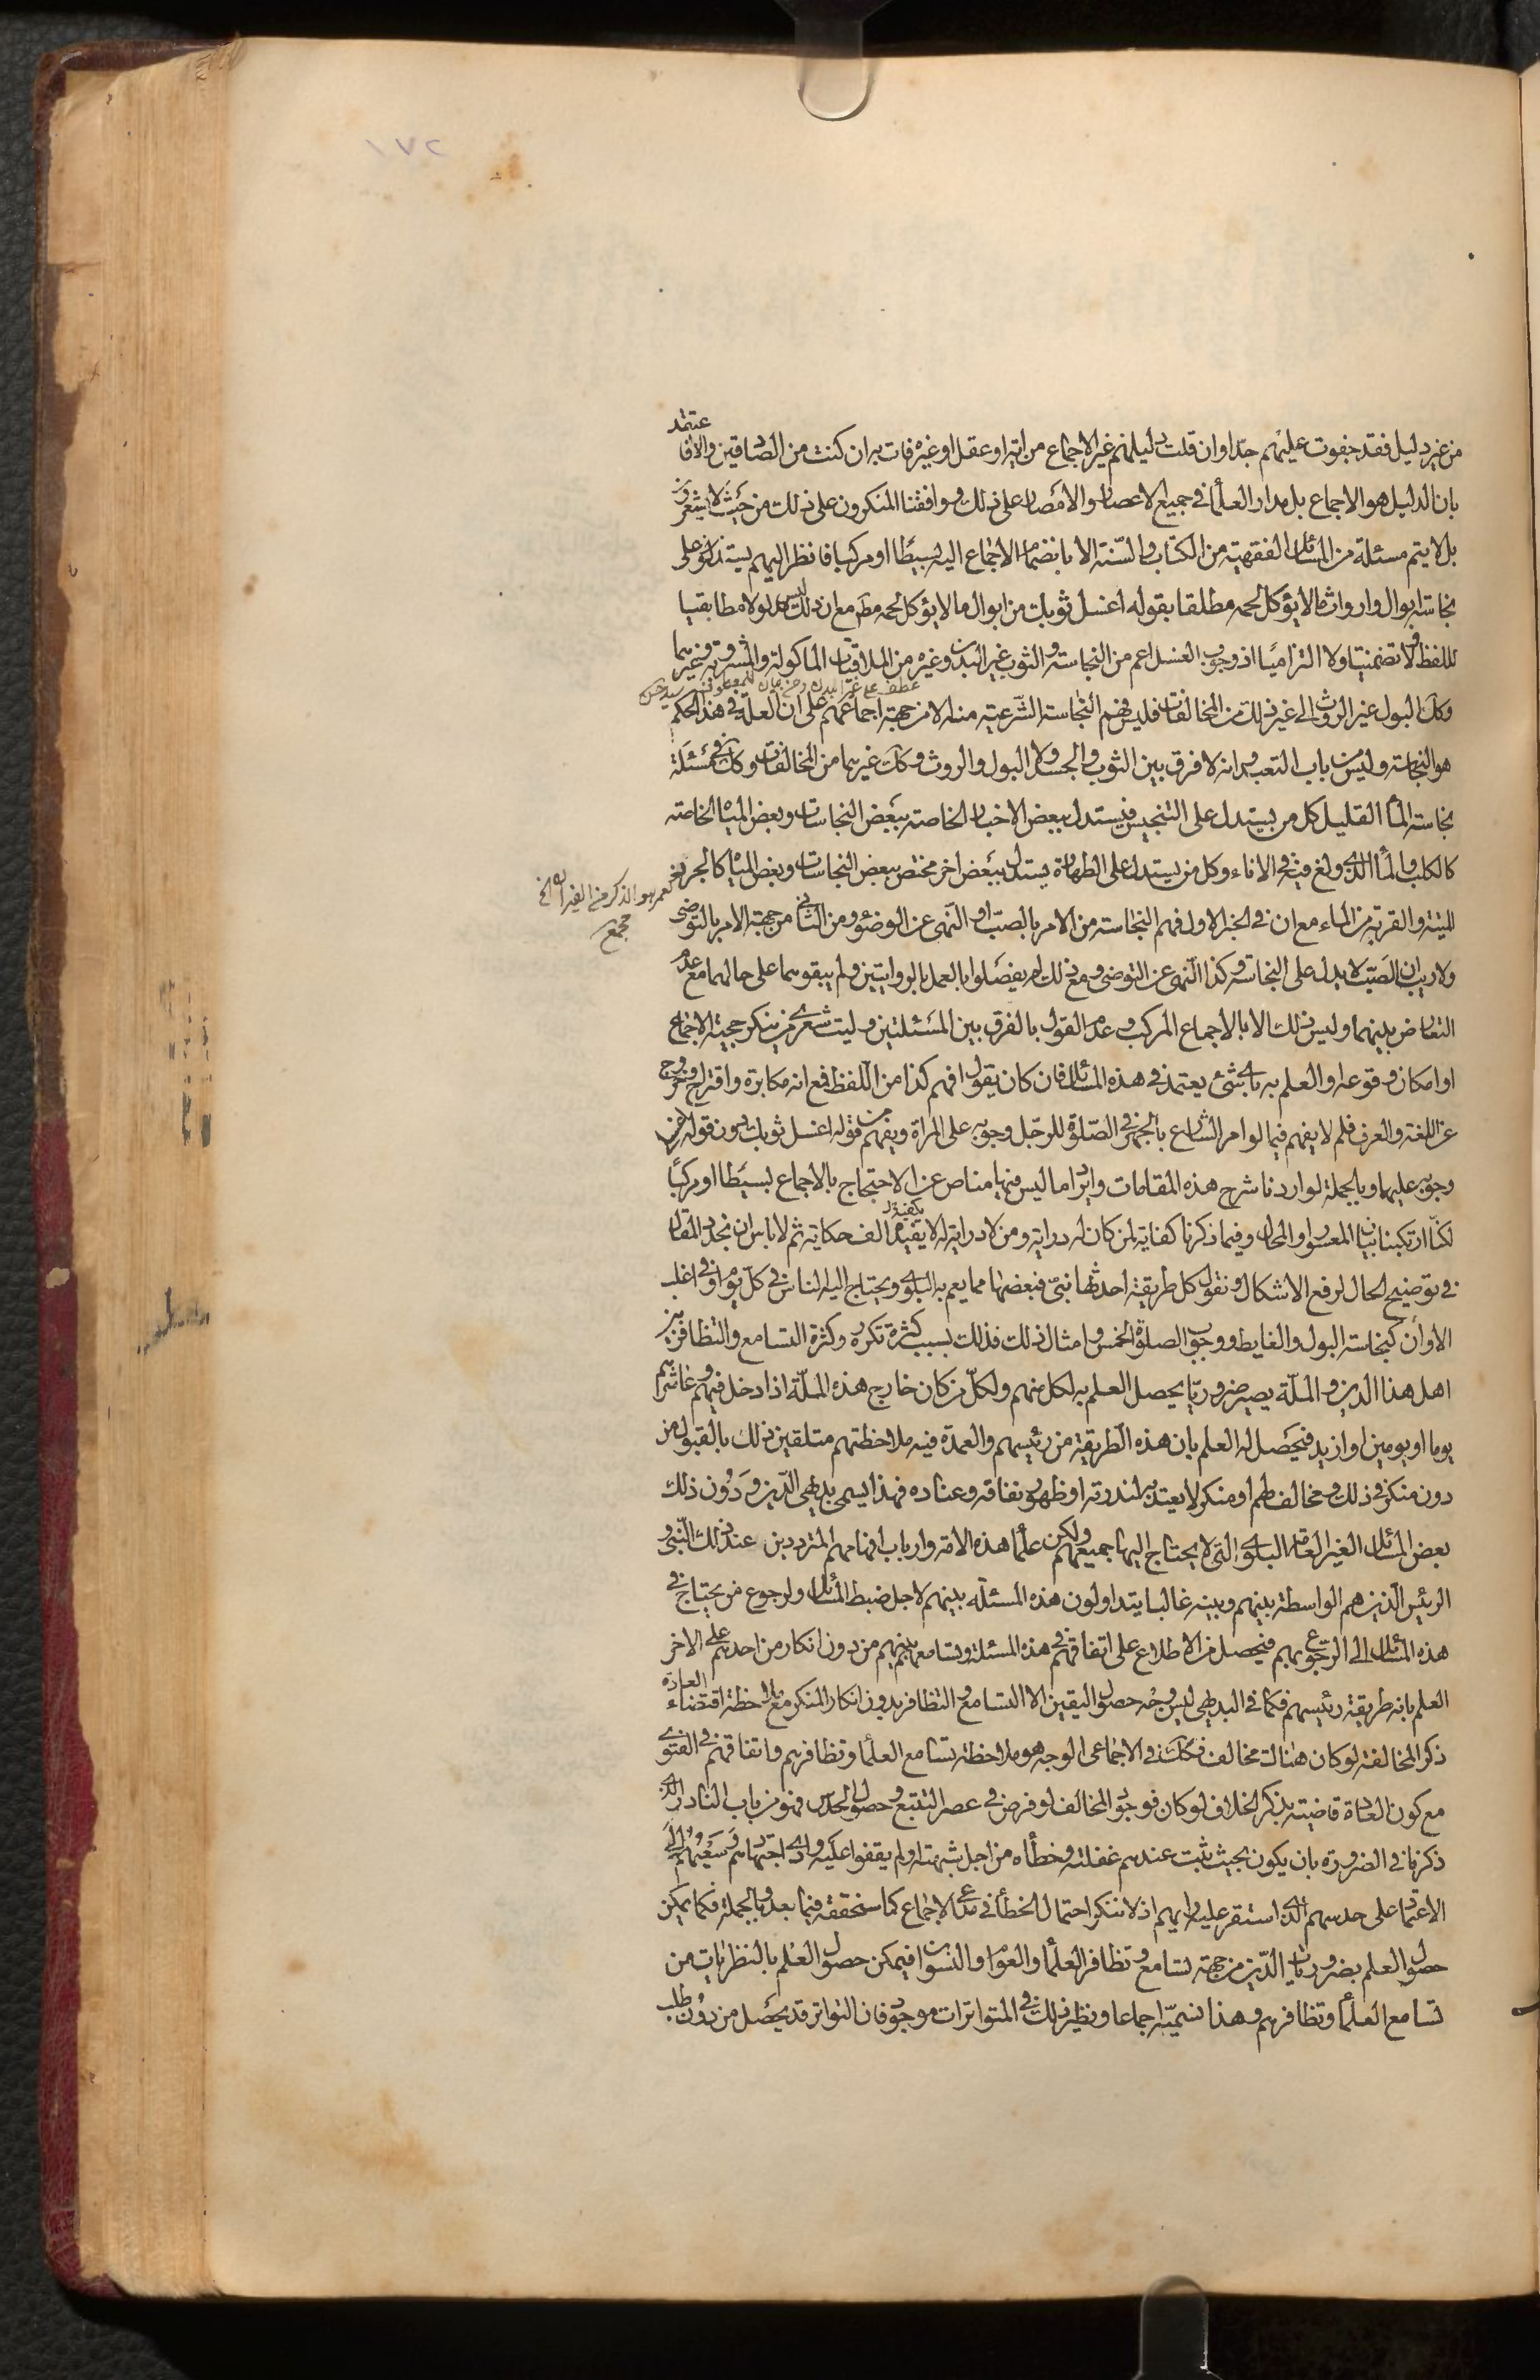 ١٧٢
من غير دليل فقد جفوت عليهم جدا وان قلت دليلهم غير الاجماع من اية او عقل او غيره فات به ان كنت من الصادقين والا فاعتمد
بان الدليل هو الاجماع بل مدار العلماء في جميع الاعصار والامصار على ذلك ووافقنا المنكرون على ذلك من حيث لا يشعرون
بل لا يتم مسئلة من المسائل الفقهية من الكتاب والسنة الا بانضمام الاجماع اليه بسيطا او مركبا فانظر اليهم يستدلون على
نجاسة ابوال وارواث ما لا يؤكل لحمه مطلقا بقوله اغسل ثوبك من ابوال ما لا يؤكل لحمه مط مع ان ذلك ليس مدلولا مطابقيا
للفظ ولا تضمنيا ولا التزاميا اذ وجوب الغسل اعم من النجاسة والثوب غير البدن وغيره من الملاقيات الماكولة والمشروبة وغيرهما
عطف على غير البدن
وكك البول غير الروث الى غير ذلك من المخالفات فليس فهم النجاسة الشرعية منه الا من جهة اجماعهم على ان العلة في هذا الحكم
هو النجاسة وليس من باب التعبد وانه لا فرق بين الثوب والجسد ولا البول والروث وكك غيرهما من المخالفات وكك في مسئلة
نجاسة الماء القليل كل من يستدل على التنجيس فيستدل ببعض الاخبار الخاصة ببعض النجاسات وبعض المياه الخاصة
كالكلب والماء الذي ولغ فيه في الاناء وكل من يستدل على الطهارة يستدل ببعض اخر مختص ببعض النجاسات وبعض المياه كالجرذ
الميتة والقربة من الماء مع ان في الخبر الاول فهم النجاسة من الامر بالصب او النهي عن الوضوء ومن الثاني من جهة الامر بالتوضي
ولا ريب ان الصب لا يدل على النجاسة وكذا النهي عن التوضي ومع ذلك لم يفصلوا بالعمل بالروايتين ولم يبقوهما على حالهما مع عدم
التعارض بينهما وليس ذلك الا بالاجماع المركب وعدم القول بالفرق بين المسئلتين وليت شعري من ينكر حجية الاجماع
او امكان وقوعه او العلم به باي شئ يعتمد في هذه المسائل فان كان يقول افهم كذا من اللفظ فمع انه مكابرة واقتراح وخروج
عن اللغة والعرف فلم لا يفهم فيما لو امر الشارع بالجهر في الصلوة للرجل وجوبه على المراة ويفهم من قوله اغسل ثوبك بدون قوله
وجوبه عليهما وبالجملة لو اردنا شرح هذه المقامات وايراد ما ليس فيها مناص عن الاحتجاج بالاجماع بسيطا او مركبا
لكنا ارتكبنا بيان المعسور او المحال وفيما ذكرنا كفاية لمن كان له دراية ومن لا دراية له لا يفيده الف حكاية ثم لا باس ان نجدد المقال
في توضيح الحال لرفع الاشكال ونقول كل طريقة احدثها نبي فبعضها مما يعم به البلوى ويحتاج اليه الناس في كل يوم او في اغلب
الاوان كنجاسة البول والغايط ووجوب الصلوة الخمس وامثال ذلك فذلك بسبب كثرة تكرره وكثرة التسامع والتظافر بين
اهل هذا الدين والملة يصير ضروريا يحصل العلم به لكل منهم ولكل من كان خارج هذه الملة اذا دخل فيهم وعاشرهم
يوما او يومين او ازيد فيحصل له العلم بان هذه الطريقة من رئيسهم والعمدة فيه ملاحظتهم متلقين ذلك بالقبول من
دون منكر في ذلك ومخالف لهم او منكر لا يعتد به لندرته او ظهور نفاقه وعناده فهذا يسمى بديهي الدين ودون ذلك
بعض المسائل الغير العامة البلوى التي لا يحتاج اليها جميعهم ولكن علماء هذه الامة وارباب افهامهم المترددين عند ذلك النبي و
الرئيس الذين هم الواسطة بينهم وبينه غالبا يتداولون هذه المسئلة بينهم لاجل ضبط المسائل ولرجوع من يحتاج في
هذه المسائل الى الرجوع بهم فيحصل من الاطلاع على اتفاقهم في هذه المسئلة وتسامعها بينهم من دون انكار من احدهم على الاخر
العلم بانه طريقة رئيسهم فكما في البديهي ليس وجه حصول اليقين الا التسامع والتظافر بدون انكار المنكر مع ملاحظة اقتضاء العادة
ذكر المخالفة لو كان هناك مخالف فكك في الاجماعي الوجه هو ملاحظة تسامع العلماء وتظافرهم واتفاقهم في الفتوى
مع كون العادة قاضية بذكر الخلاف لو كان فوجود المخالف لو فرض في عصر التتبع وحصول الحدس فهو من باب النادر الذي
ذكرنا في الضرورة بان يكون بحيث يثبت عندهم غفلته وخطأه من اجل شبهته ولم يقفوا عليه وادى اجتهادهم وسعيهم الى
الاعتماد على حدسهم الذي استقر عليه رايهم اذ لا ننكر احتمال الخطأ في مدعي الاجماع كما سنحققه فيما بعد وبالجملة فكما يمكن
حصول العلم بضروريات الدين من جهة تسامع وتظافر العلماء والعوام والنسوان فيمكن حصول العلم بالنظريات من
تسامع العلماء وتظافرهم وهذا نسميه اجماعا ونظير ذلك في المتواترات موجود فان التواتر قد يحصل من دون طلب